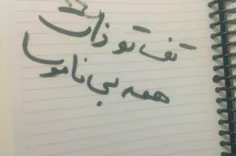 تف تو ذات
همه بی ناموسا